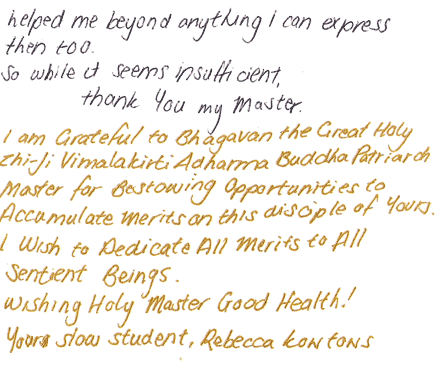 helped me beyond anything I can express
then too.
So while it seems insufficient,
thank You my Master.
I am Grateful to Bhagavan the Great Holy
Zhi-Ji Vimalakirti Adharma Buddha Patriarch
Master for Bestowing Opportunities to
Accumulate merits on this disciple of Yours.
I Wish to Dedicate All Merits to All
Sentient Beings.
Wishing Holy Master Good Health!
Your slow student, Rebecca Kontons